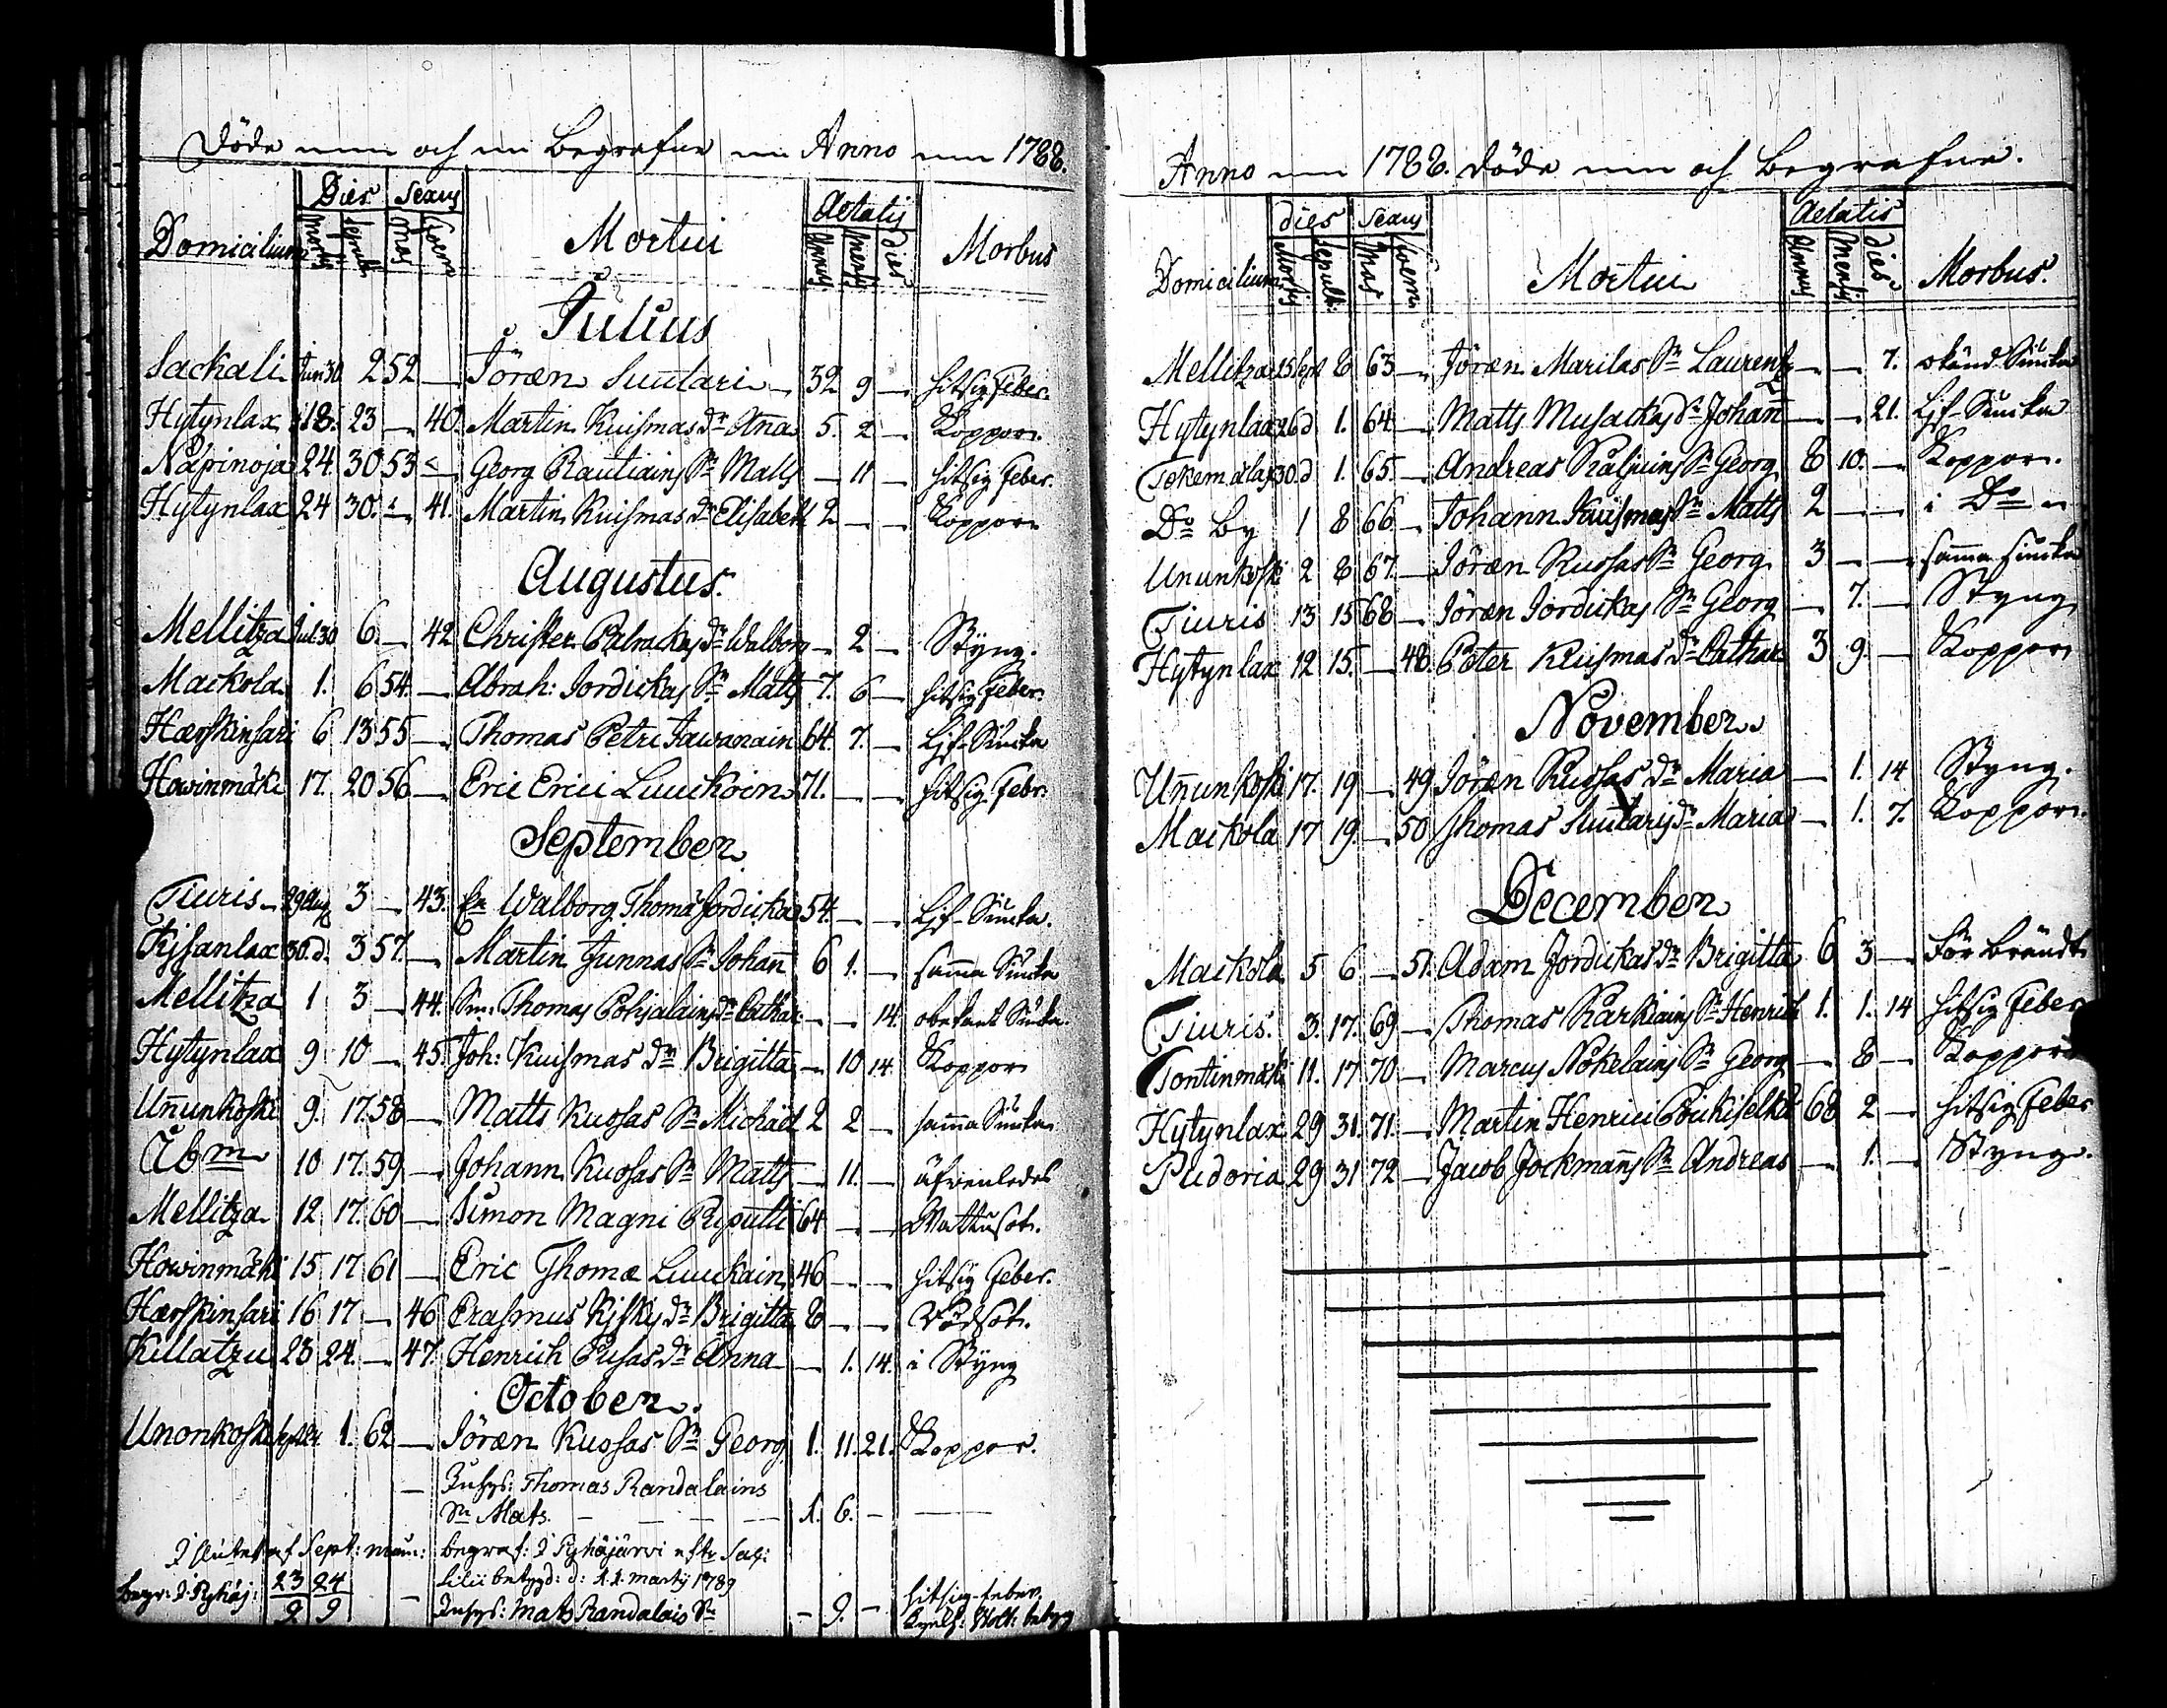 Döde och Begrafne Anno 1788.
Domicilium Dies Sexus Mortui Aetatis Morbus
Mortis Sepult: Mas Foem: Annus Mensis Dies
Julius
Sackali Jun 30 2 52 — Jören Suutari — 32 9 — hitsig Feber.
Hytynlax 18. 23 — 40. Martin Kuismas dr Anna 5. 2 — Koppor.
Näpinoja 24. 30 53 — Georg Rautiains Sn Matts — 11 — hitsig Feber.
Hytynlax 24 30. — 41. Martin Kuismas dr Elisabeth 2 — — Koppor
Augustus.
Mellitza Jul. 30 6 — 42 Christer Palmckas dr Walborg — 2 — Styng.
Mackola 1. 6 54. — Abrah: Jordickas Sn Matts 7. 6 — hitsig Feber.
Hærskinsari 6 13 55 — Thomas Petri Jawanain 64. 7. — Lijf-Siuka
Howinmäki 17. 20 56 — Eric Erici Luuckoin 71. — — hitsig Febr:
September
Tiuris — 29 Aug 3 — 43. Walborg Thomæ Jordicka 54. — — Lijf-Siuka.
Kijsanlax 30. d. 3 57. — Martin Junnas Sn Johan 6 1. — samma Siuka
Mellitza 1 3 — 44. Thomas Pohjalains dr Cathar — — 14. obekant Siuka.
Hytynlax 9 10 — 45. Joh: Kuismas Dr Brigitta — 10 14. Koppor
Unnunkoski 9. 17. 58 — Matts Kuosas Sn Michaël 2 2 — samma Siuka
Ab m 10 17. 59 — Johann Kuosas Sn Matts — 11. — äfwenledes
Mellitza 12 17. 60 — Simon Magni Riputti 64 — — Wattusot.
Howinmäki 15 17 61 — Eric Thomæ Luuckain 46 — — hitsig Feber.
Hærskinsari 16 17 — 46 Erasmus Kijskis dr Brigitta 8 — — Rödsot.
Killatzu 23 24. — 47. Henrich Pusas dr Anna — 1. 14. i Styng
October.
Unonkoski 1. 62 — Jören Kuosas Sn Georg 1. 11. 21. Koppor.
— Inhys: Thomas Randalains
Sn Mats. — — — — 1. 6. — —
I slutet af Sept: mån: begraf: i Pyhäjärvi
betygd: d: 11. martij 1789
begr: i Pyhäj: 23 24 — hitsig feber.
9 9 Inhys: Mats Randalais Sn — 9. — betyg
Anno 1788. Döde och Begrafne.
Domicilium Dies Sexus Mortui Aetatis Morbus.
Mortis Sepult: Mas Foem: Annus Mensis Dies
Mellitza 15 Sept 8 63 — Jören Marilas Sn Laurentz — — 7. okänd Siuka
Hytynlax 26 d 1. 64 — Matts Musackas Sn Johan — — 21. Lijf-Siuka
Tokemalax 30. d 1. 65. — Andreas Räljuins Sn Georg 8 10. — Koppor.
Do By 1 8 66 — Johann Kuismas Sn Matts 2 — — i Do
Ununkoski 2 8 67. — Jören Kuosas Sn Georg 3 — — samma siuka
Tiuris 13 15 68 — Jören Jordickas Sn Georg — 7. — Styng
Hytynlax 12 15. — 48. Peter Kuismas dr Cathar 3 9. — Koppor
November
Unnunkoski 17. 19 — 49 Jören Kuosas dr Maria — 1. 14 Styng.
Mackola 17 19. — 50 Thomas Suutaris dr Maria — 1. 7. Koppor.
December
Mackola 5 6 — 51. Adam Jordickas dr Brigitta 6 3 — För brändt
Tiuris. 3. 17. 69 — Thomas Karkiains Sn Henrich 1. 1. 14 hitsig Feber
Tontinmäki 11. 17 70 — Marcus Nokelains Sn Georg — 8 — Koppor
Hytynlax 29 31. 71. — Martin Henrici Poickiselkä 68 2 — hitsig Feber
Pudoria 29 31 72 — Jacob Jockmanns Sn Andreas — 1. — Styng.